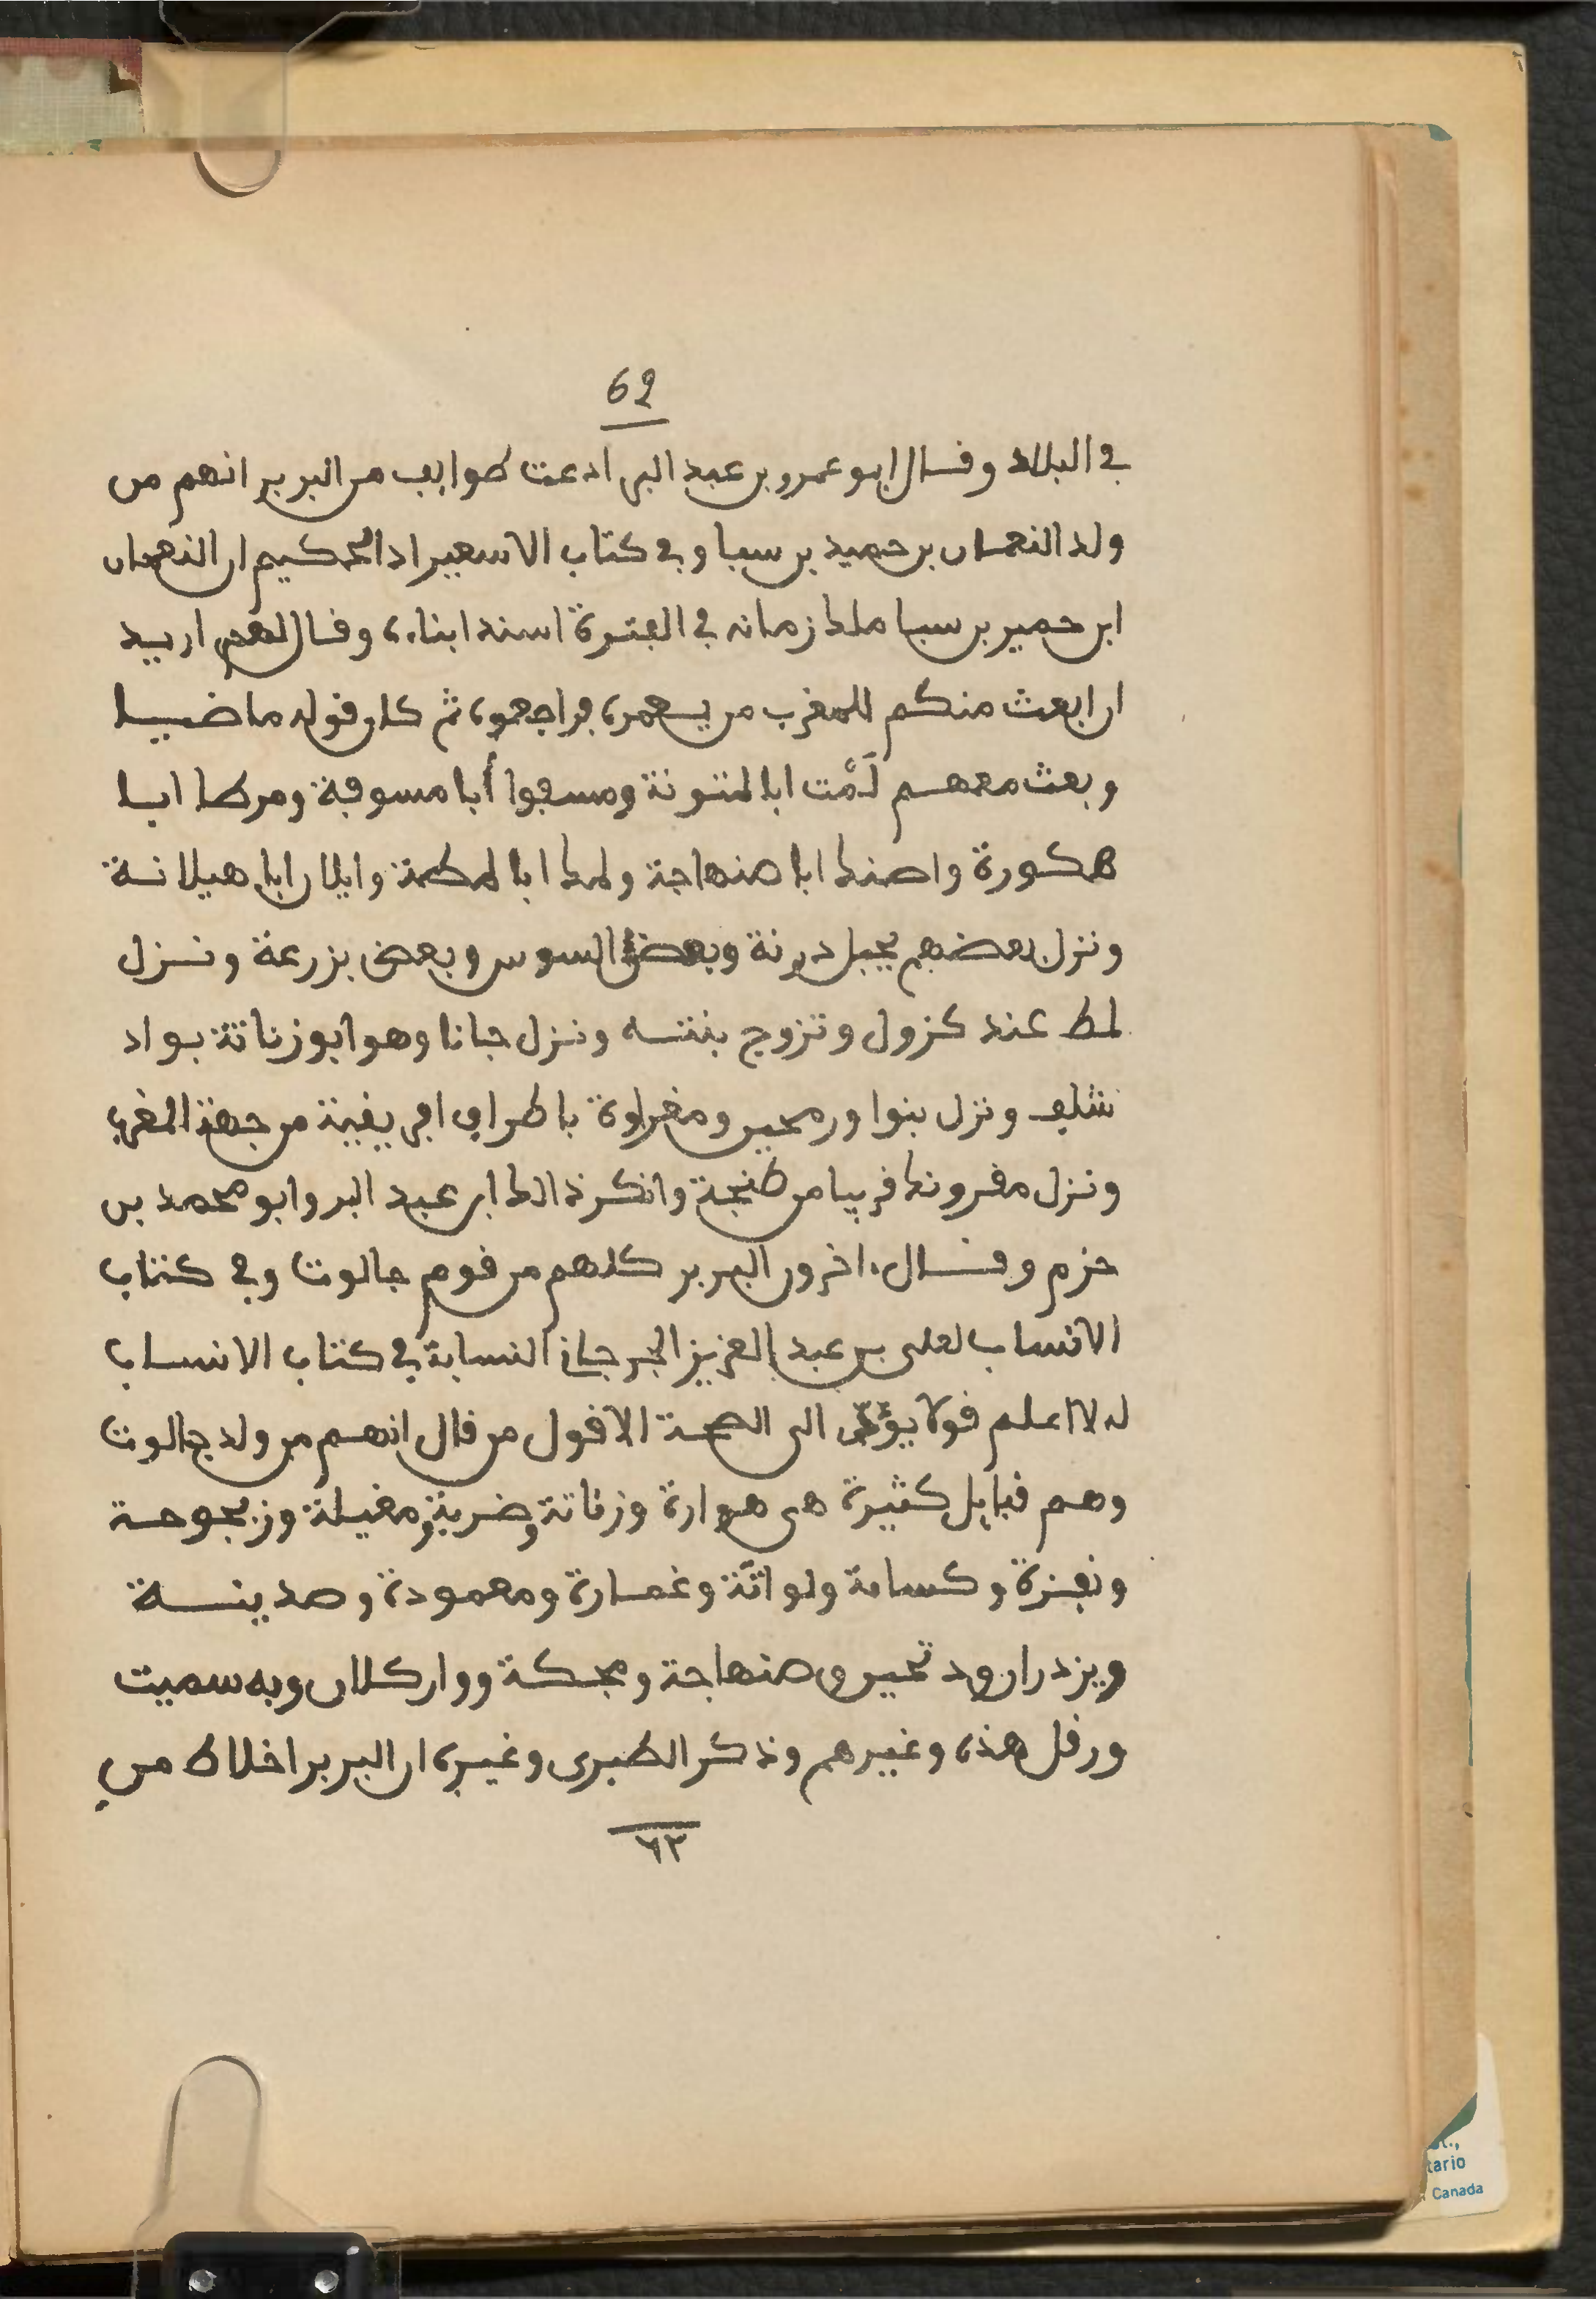 62
في البلاد وقال ابو عمرو بن عبد البر ادعت طوايف من البربر انهم من
ولد النعمان بن حميد بن سبا وفي كتاب الاسفير اد الحكيم ان النعمان
ابن حمير بن سبا ملك زمانه في الفترة اسند ابناءه وقال لهم اريد
ان ابعث منكم للمغرب من يعمره فراجعوه ثم كان قوله ماضيا
وبعث معهم لَمْت ابا لمتونة ومسفوا أبا مسوفة ومرطا ابا
هكورة واصنط ابا صنهاجة ولمط ابا لمطة وايلان ابا هيلانة
ونزل بعضهم بجبل درنة وبعض السوس وبعض بزرعة ونزل
لمط عند كزول وتزوج بنته ونزل جانا وهو ابو زناتة بواد
شلف ونزل بنوا ورمجين ومغراوة باطراف افريقية من جهة المغرب
ونزل مقرونط قريبا من طنجة وانكر ذالك ابن عبد البر وابو محمد بن
حزم وقال اخرون البربر كلهم من قوم جالوت وفي كتاب
الانساب لعلى بن عبد العزيز الجرجاني النسابة في كتاب الانساب
له لا اعلم قولا يؤدى الى الصحة الا قول من قال انهم من ولد جالوت
وهم قبايل كثيرة هى هوارة وزناتة وضرية ومغيلة وزبجوحة
ونفزة وكسامة ولواتة وغمارة ومعمودة وصدينة
ويزدران ود تحير وصنهاجة ومجكة وواركلان وبه سميت
ورقل هذه وغيرهم وذكر الطبرى وغيره ان البربر اخلاط من
٦٢
tario
Canada